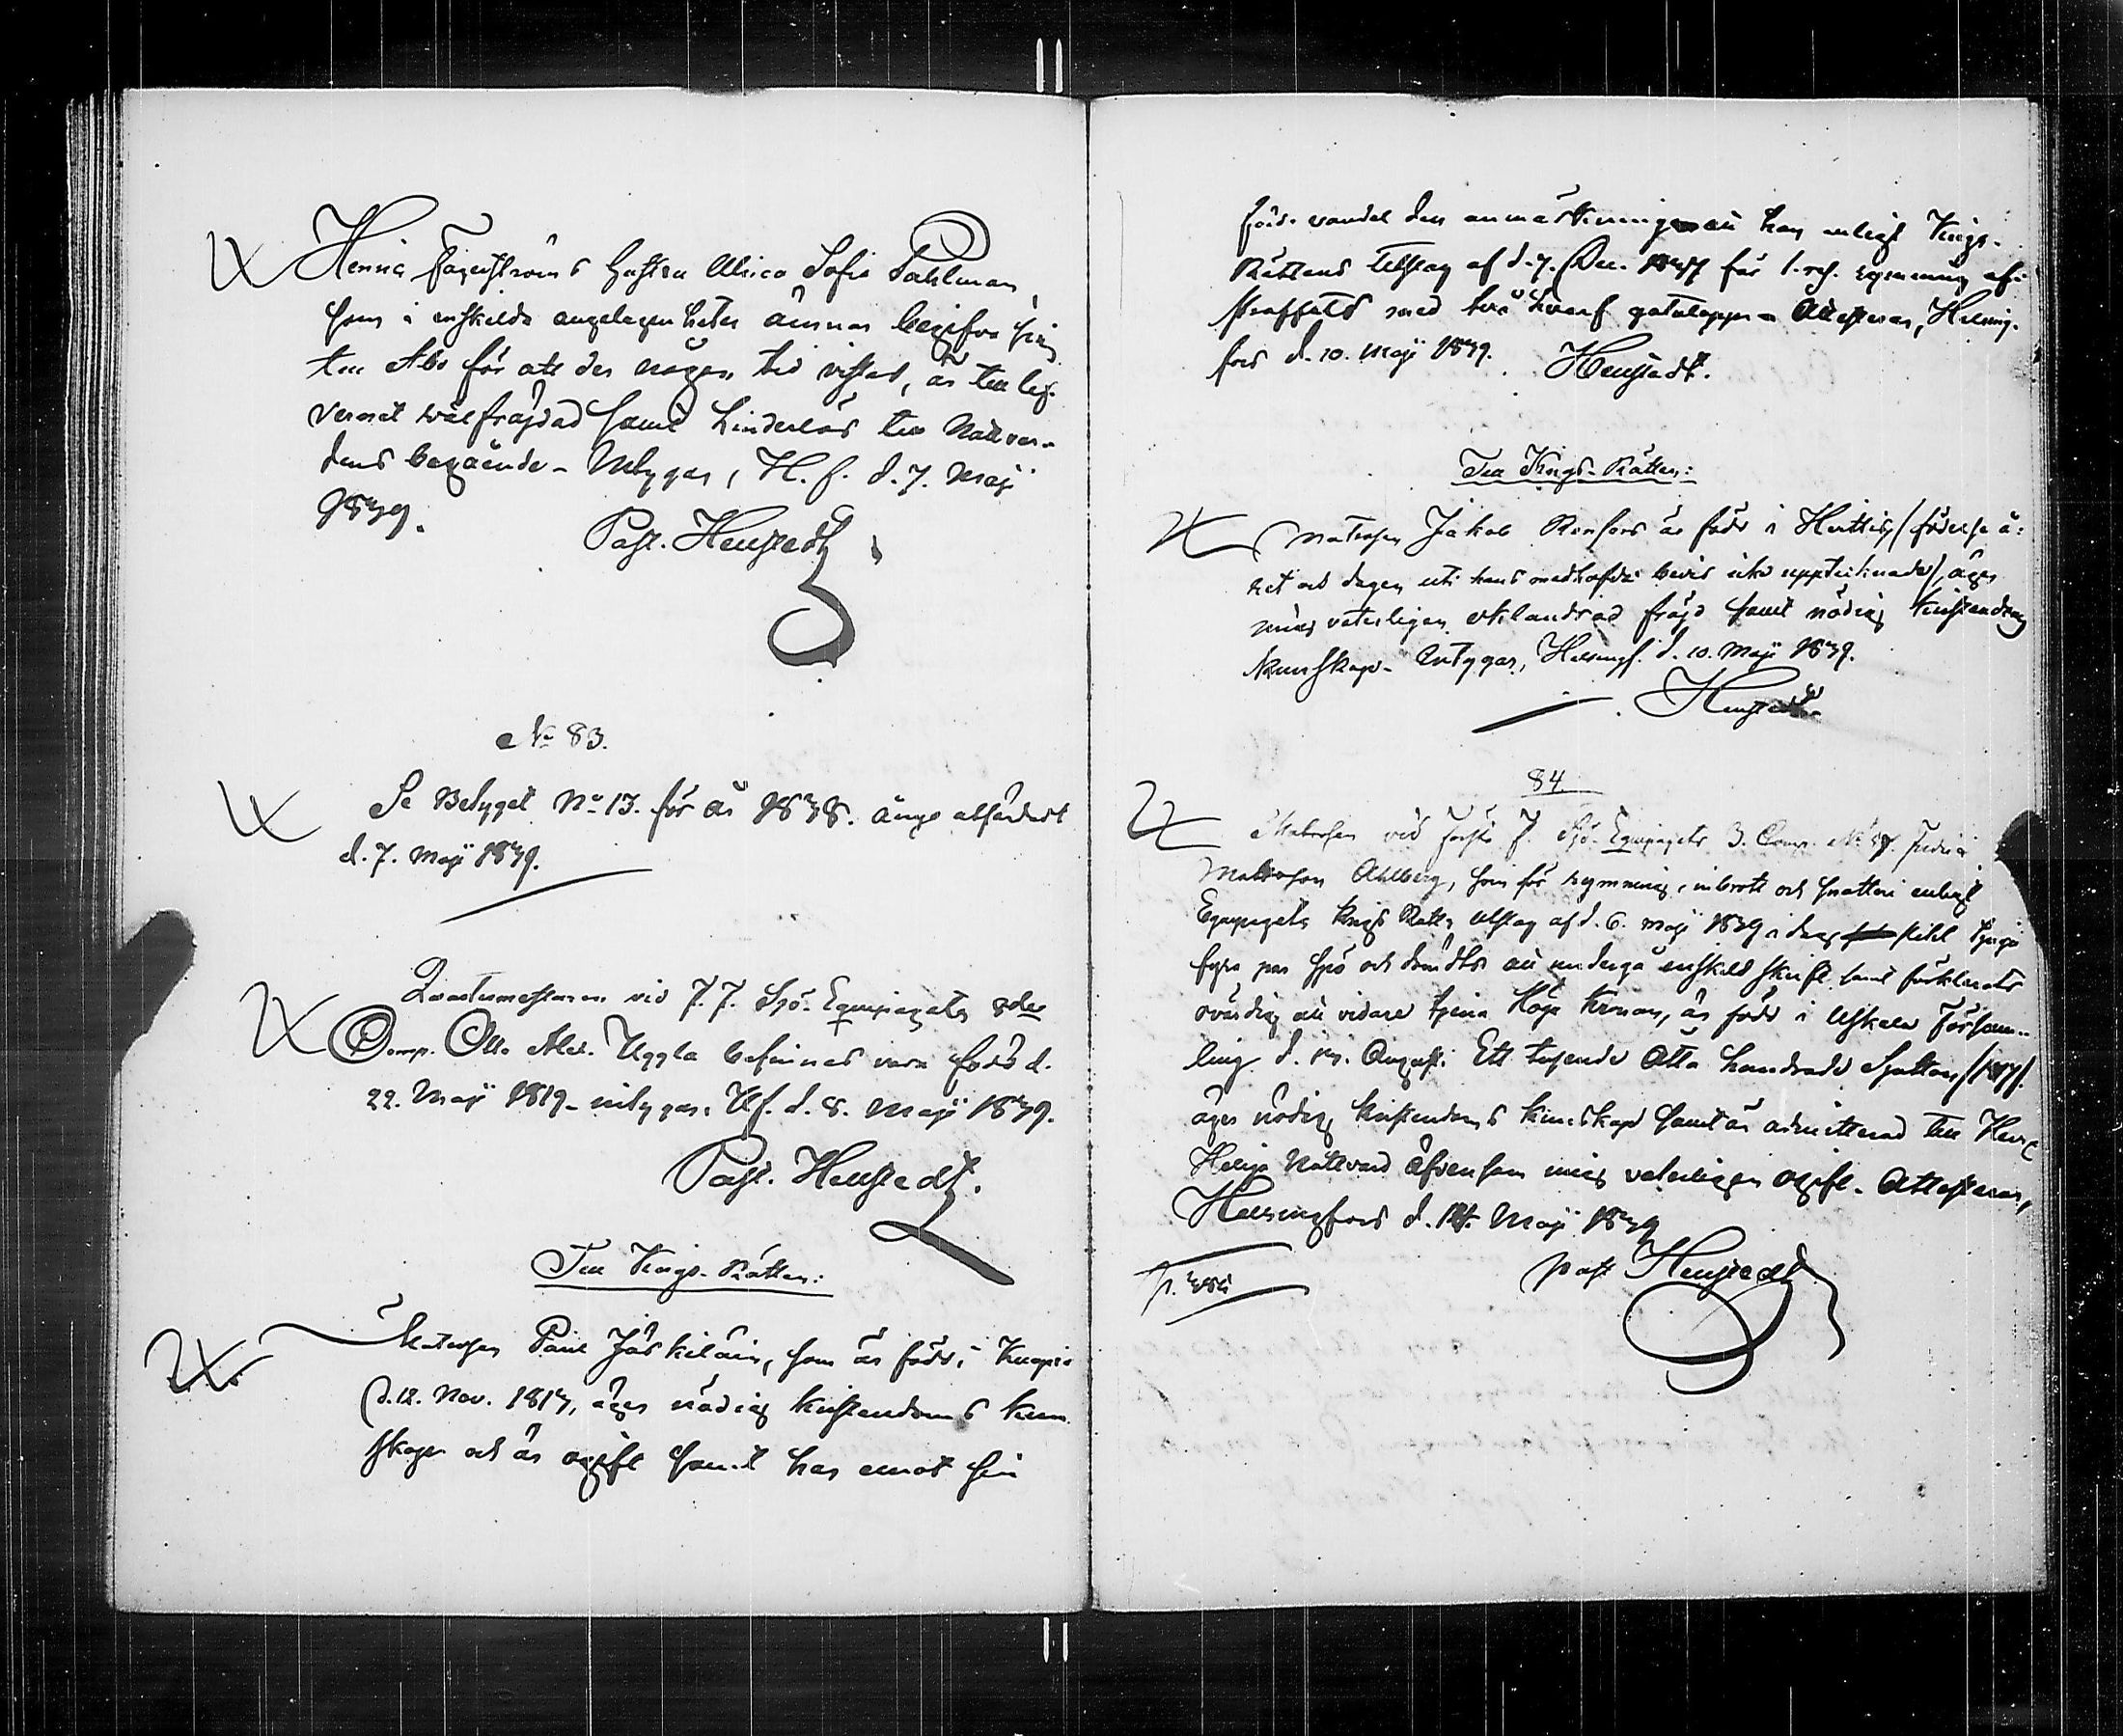 Henric Fagerströms hustru Ulrica Sofia Pahlman,
som i enskilda angelägenheter ämnar begifva sig
till Åbo för att der någon tid vistas, är till lef-
vernet wälfräjdad samt hinderlös till Nattvar-
dens begående. Intygar, H. f. d. 7. Maji
1839.
Past. Henstedt
No 83.
Se Betyget No 13. för år 1838. ånyo utfärdat
d. 7. Maji 1839.
Quartermästaren vid F. F. Sjö-Equipagets
Comp. Otto Alex. Uggla befinnes vara född d.
22. Maji 1819. intygar, Hf. d. 8. Maji 1839.
Past. Henstedt.
Till Krigs-Rätten:
Matrosen Paul Jäskeläin, som är född i Kuopio
d. 12. Nov. 1817, äger nödig kristendoms kun-
skap och är ogift samt har emot sin
vandel den anmärkningen att han enligt Krigs-
Rättens Utslag af d. 7. Dec. 1837 för 1. resan rymning af-
straffats med två hvarf gatulopp. Attesterar, Helsing-
fors d. 10. Maji 1839. Henstedt.
Till Krigs-Rätten:
Matrosen Jakob Renfors är född i Hvittis (födelse å-
ret och dagen uti hans medhafda bevis icke upptecknade), äger
mig veterligen oklandrad fräjd samt nödig kristendoms
kunskap. Intygar, Helsingf. d. 10. Maji 1839.
Henstedt
84.
Matrosen vid Första F. Sjö-Equipagets 3. Comp. No
Matrosen Ahlberg, som för rymning, inbrott och snatteri enligt
Equipagets Krigs Rätts utslag af d. 6. Maji 1839 i dag slitit tjugu
fyra par spö och dömdts att undergå enskild skrift samt förklarats
ovärdig att vidare tjena Höga Kronan, är född i Uskela Försam-
ling d. Augusti Ett tusende Åtta hundrade Sjutton /1817/.
äger nödig kristendoms kunskap samt är admitterad till Herrens
Heliga Nattvard äfvensom mig veterligen ogift. Attesterar,
Helsingfors d. 14. Maji 1839
past Henstedt